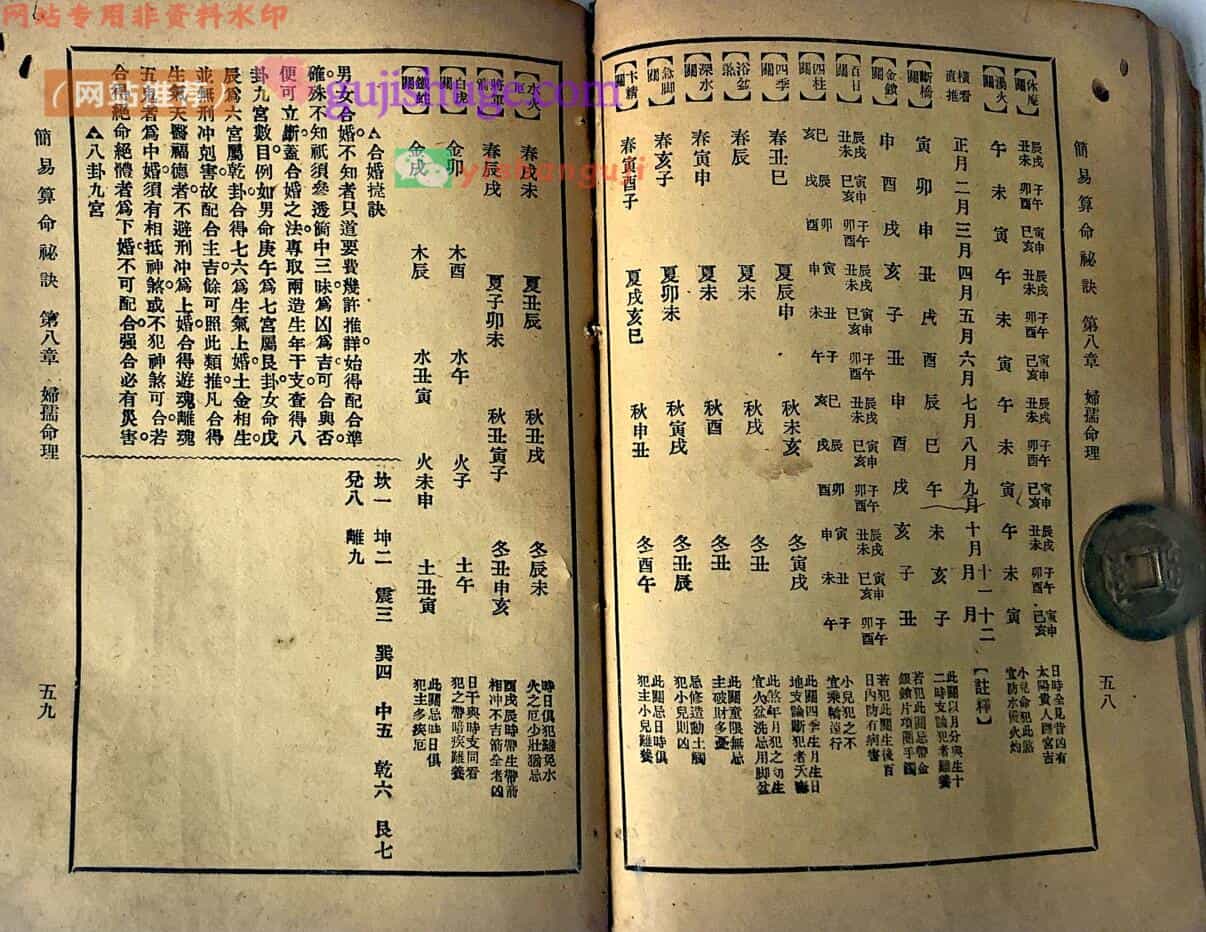 网站专用非资料水印
网站推荐
gujishuge.com
yishuguji
簡易算命祕訣 第八章 婦孺命理
五八
【休庵關】 辰戌丑未 子午卯酉 寅申巳亥 辰戌丑未 子午卯酉 寅申巳亥 辰戌丑未 子午卯酉 寅申巳亥 辰戌丑未 子午卯酉 寅申巳亥
【湯火關】 午 未 寅 午 未 寅 午 未 寅 午 未 寅
橫看直推 正月 二月 三月 四月 五月 六月 七月 八月 九月 十月 十一月 十二月 【註釋】
【斷橋關】 寅 卯 申 丑 戌 酉 辰 巳 午 未 亥 子
【金鎖關】 申 酉 戌 亥 子 丑 申 酉 戌 亥 子 丑
【百日關】 辰戌丑未 寅申巳亥 子午卯酉 辰戌丑未 寅申巳亥 子午卯酉 辰戌丑未 寅申巳亥 子午卯酉 辰戌丑未 寅申巳亥 子午卯酉
【四柱關】 巳亥 辰戌 卯酉 寅申 丑未 子午 巳亥 辰戌 卯酉 寅申 丑未 子午
【四季關】 春丑巳 夏辰申 秋未亥 冬寅戌
【浴盆煞】 春辰 夏未 秋戌 冬丑
【深水關】 春寅申 夏未 秋酉 冬丑
【急脚關】 春亥子 夏卯未 秋寅戌 冬丑辰
春寅酉子 夏戌亥巳 秋申丑 冬酉午
日時全見昔凶有
太陽貴人臨宮吉
小兒命犯此煞
宜防水㡳火灼
此關以月分與生十
二時支論犯者難養
若犯此關忌帶金
銀鎖片項圈手鐲
若犯此關生後百
日內防有病害
小兒犯之不
宜乘轎遠行
此關四季生月生日
地支論斷犯者夭壽
此煞年月犯之初生
宜火盆洗忌用脚盆
此關童限無忌
主破財多憂
忌修造動土觸
犯小兒則凶
此關忌日時俱
犯主小兒難養
春未戌 夏丑辰 秋丑戌 冬辰未
春辰戌 夏子卯未 秋丑寅子 冬丑申亥
【白虎關】 金卯 木酉 水午 火子 土午
金戌 木辰 水丑寅 火未申 土丑寅
時日俱犯難免水
火之厄少壯猶忌
酉戌辰時帶生帶箭
相冲不吉箭全者凶
日干與時支同看
犯之帶暗疾難養
此關忌時日俱
犯主多疾厄
▲合婚捷訣
男女合婚。不知者只道要費幾許推詳。始得配合準
確。殊不知祇須參透箇中三昧。爲凶爲吉。可合與否。
便可立斷。蓋合婚之法。專取兩造生年干支。查得八
卦九宮數目。例如男命庚午。爲七宮屬艮卦。女命戊
辰。爲六宮屬乾卦。合得七六爲生氣上婚。土金相生。
並無刑冲剋害。故配合主吉。餘可照此類推。凡合得
生氣天醫福德者。不避刑冲。爲上婚。合得遊魂離魂
五鬼者。爲中婚。須有相抵神煞。或不犯神煞可合。若
合得絕命絕體者。爲下婚。不可配合。强合必有災害。
▲八卦九宮
坎一 坤二 震三 巽四 中五 乾六 艮七
兌八 離九
簡易算命祕訣 第八章 婦孺命理
五九